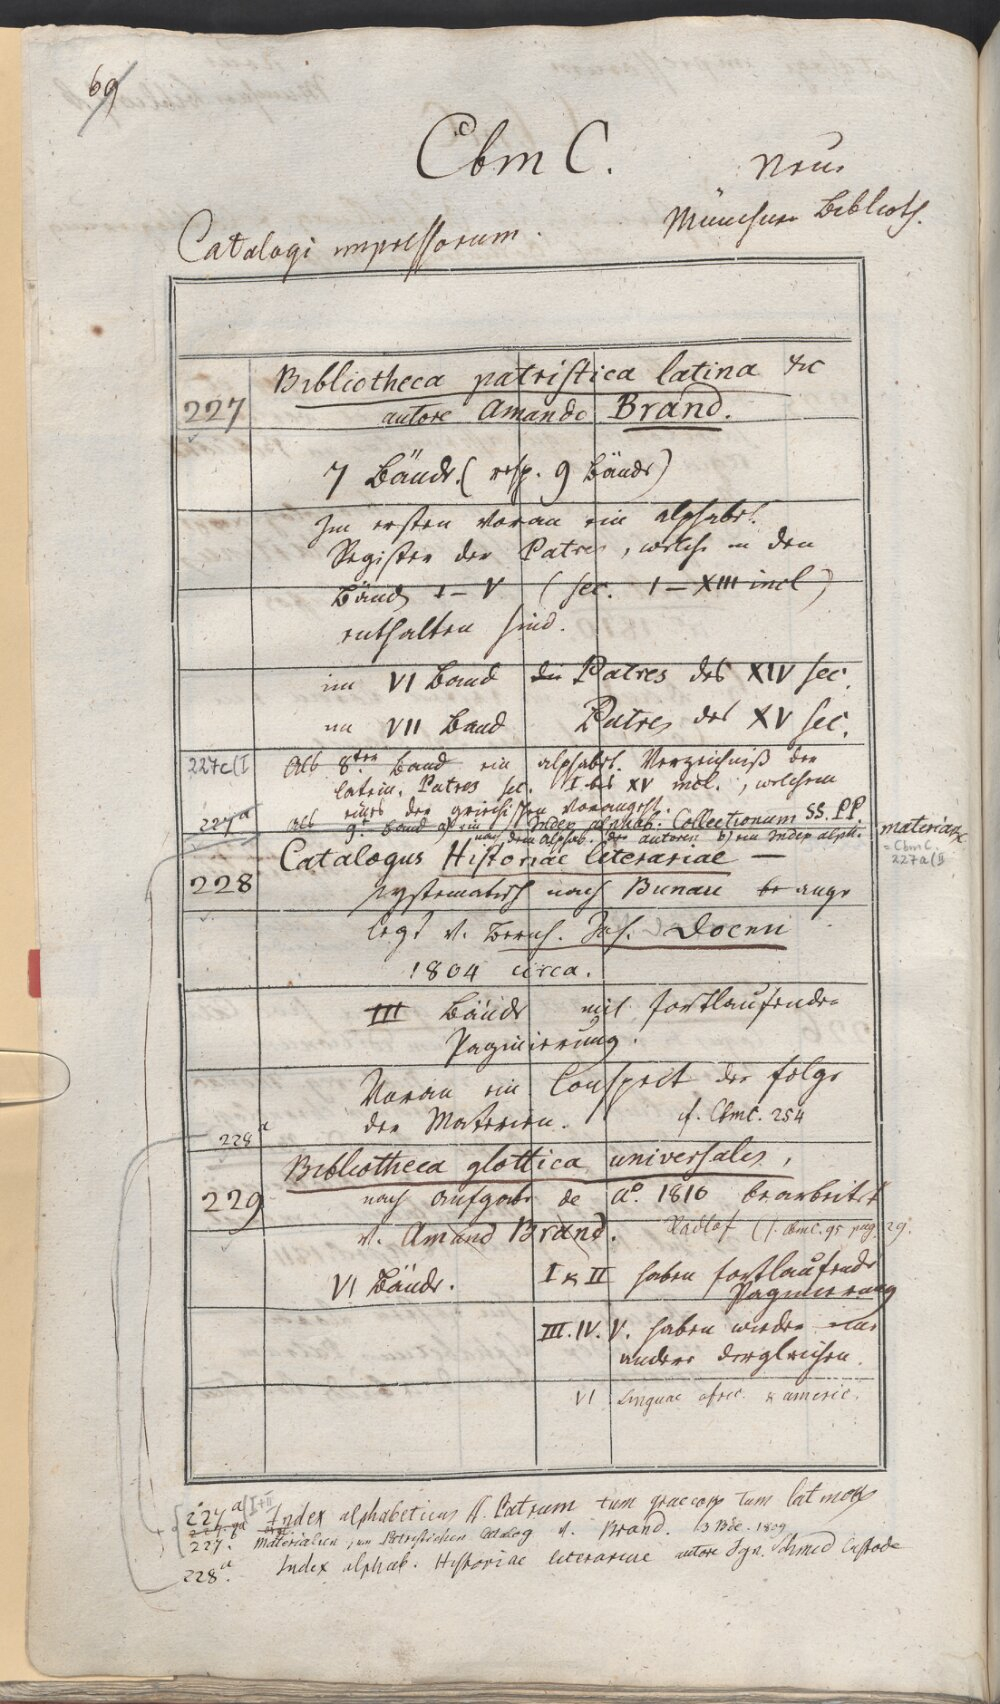 69
Cbm C.
Neue
Münchner Biblioth.
Catalogi impressorum.
Bibliotheca patristica latina &c
227
autore Amando Brand.
7 Bände. (resp. 9 Bände)
Im ersten voran ein alphabet.
Register der Patres, welche in den
Bänd I – V (sec. I – XIII incl)
enthalten sind.
im VI Band die Patres des XIV sec.
im VII Band Patres des XV sec.
227c(I Als 8ter Band ein alphabet. Verzeichniß der
latein. Patres sec. I bis XV incl., welchem
eines der griechischen vorangeht.
227a als 9t. Band a) ein Index alphab. Collectionum SS. PP.
nach dem Alphab. der autoren b) ein Index alph. materiar.
= Cbm C.
227a(II
Catalogus Historiae literariae —
228
systematisch nach Bunau be ange
legt v. Bernh. Jos. Docen
1804 circa.
III Bände mit fortlaufender
Paginierung.
Voran ein Conspect der Folge
der Materien. cf. CbmC. 254
228a
Bibliotheca glottica universalis,
229
nach Aufgabe de Ao. 1816 bearbeitet
v. Amand Brand. Radlof (f. CbmC. 95 pag. 29.
VI Bände. I & II haben fortlaufende
Paginierung
III. IV. V. haben wieder eine
andere dergleichen.
VI Linguae afric. & americ.
227a(I+II Index alphabeticus SS. Patrum tum graecorum tum latinorum
227b. Materialien zum Patristischen Catalog v. Brand. 3 Bde. 1809
228a. Index alphab. Historiae literariae autore Ign. Schmid Custode